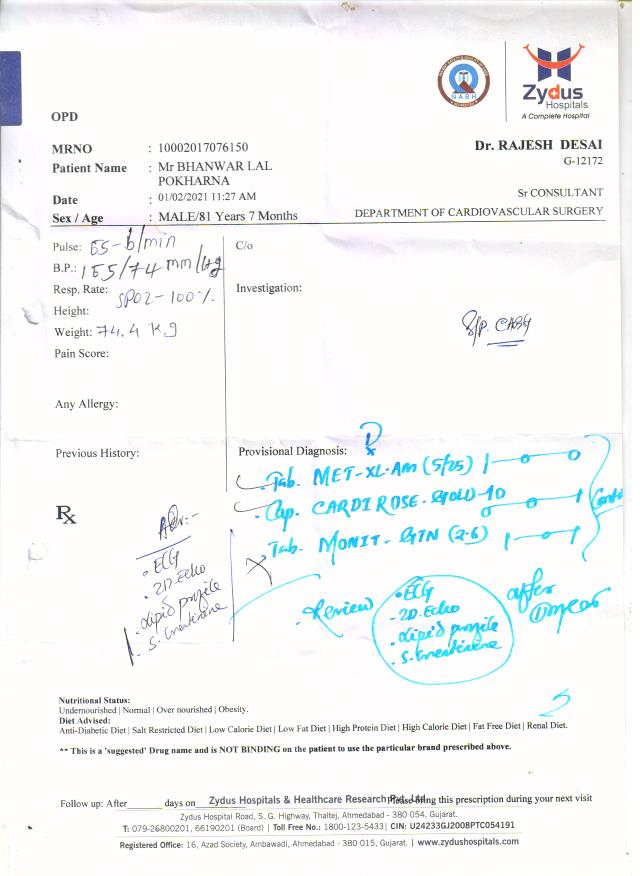 NABH
Zydus
Hospitals
A Complete Hospital
OPD
MRNO : 10002017076150
Dr. RAJESH DESAI
G-12172
Patient Name : Mr BHANWAR LAL
POKHARNA
Date : 01/02/2021 11:27 AM
Sr CONSULTANT
Sex / Age : MALE/81 Years 7 Months
DEPARTMENT OF CARDIOVASCULAR SURGERY
Pulse: 65-b/min
C/o
B.P.: 155/74 mm/Hg
Resp. Rate: SPO2-100%
Investigation:
Height:
Weight: 74.4 Kg
S/P. CABG
Pain Score:
Any Allergy:
Previous History:
Provisional Diagnosis: Rx
Tab. MET-XL-AM (5/25) 1-0-0
Cap. CARDIROSE-GOLD-10 0-0-1
Tab. MONIT-GTN (2.6) 1-0-1
Conti
Rx
Adv:-
. ECG
. 2D.Echo
. Lipid profile
. S. Creatinine
. Review
. ECG
- 2D.Echo
. Lipid profile
. S. Creatinine
after
1 year
Nutritional Status:
Undernourished | Normal | Over nourished | Obesity.
Diet Advised:
Anti-Diabetic Diet | Salt Restricted Diet | Low Calorie Diet | Low Fat Diet | High Protein Diet | High Calorie Diet | Fat Free Diet | Renal Diet.
** This is a 'suggested' Drug name and is NOT BINDING on the patient to use the particular brand prescribed above.
Follow up: After______ days on
Zydus Hospitals & Healthcare Research Pvt. Ltd.
Please bring this prescription during your next visit
Zydus Hospital Road, S. G. Highway, Thaltej, Ahmedabad - 380 054, Gujarat.
T: 079-26800201, 66190201 (Board) | Toll Free No.: 1800-123-5433| CIN: U24233GJ2008PTC054191
Registered Office: 16, Azad Society, Ambawadi, Ahmedabad - 380 015, Gujarat. | www.zydushospitals.com